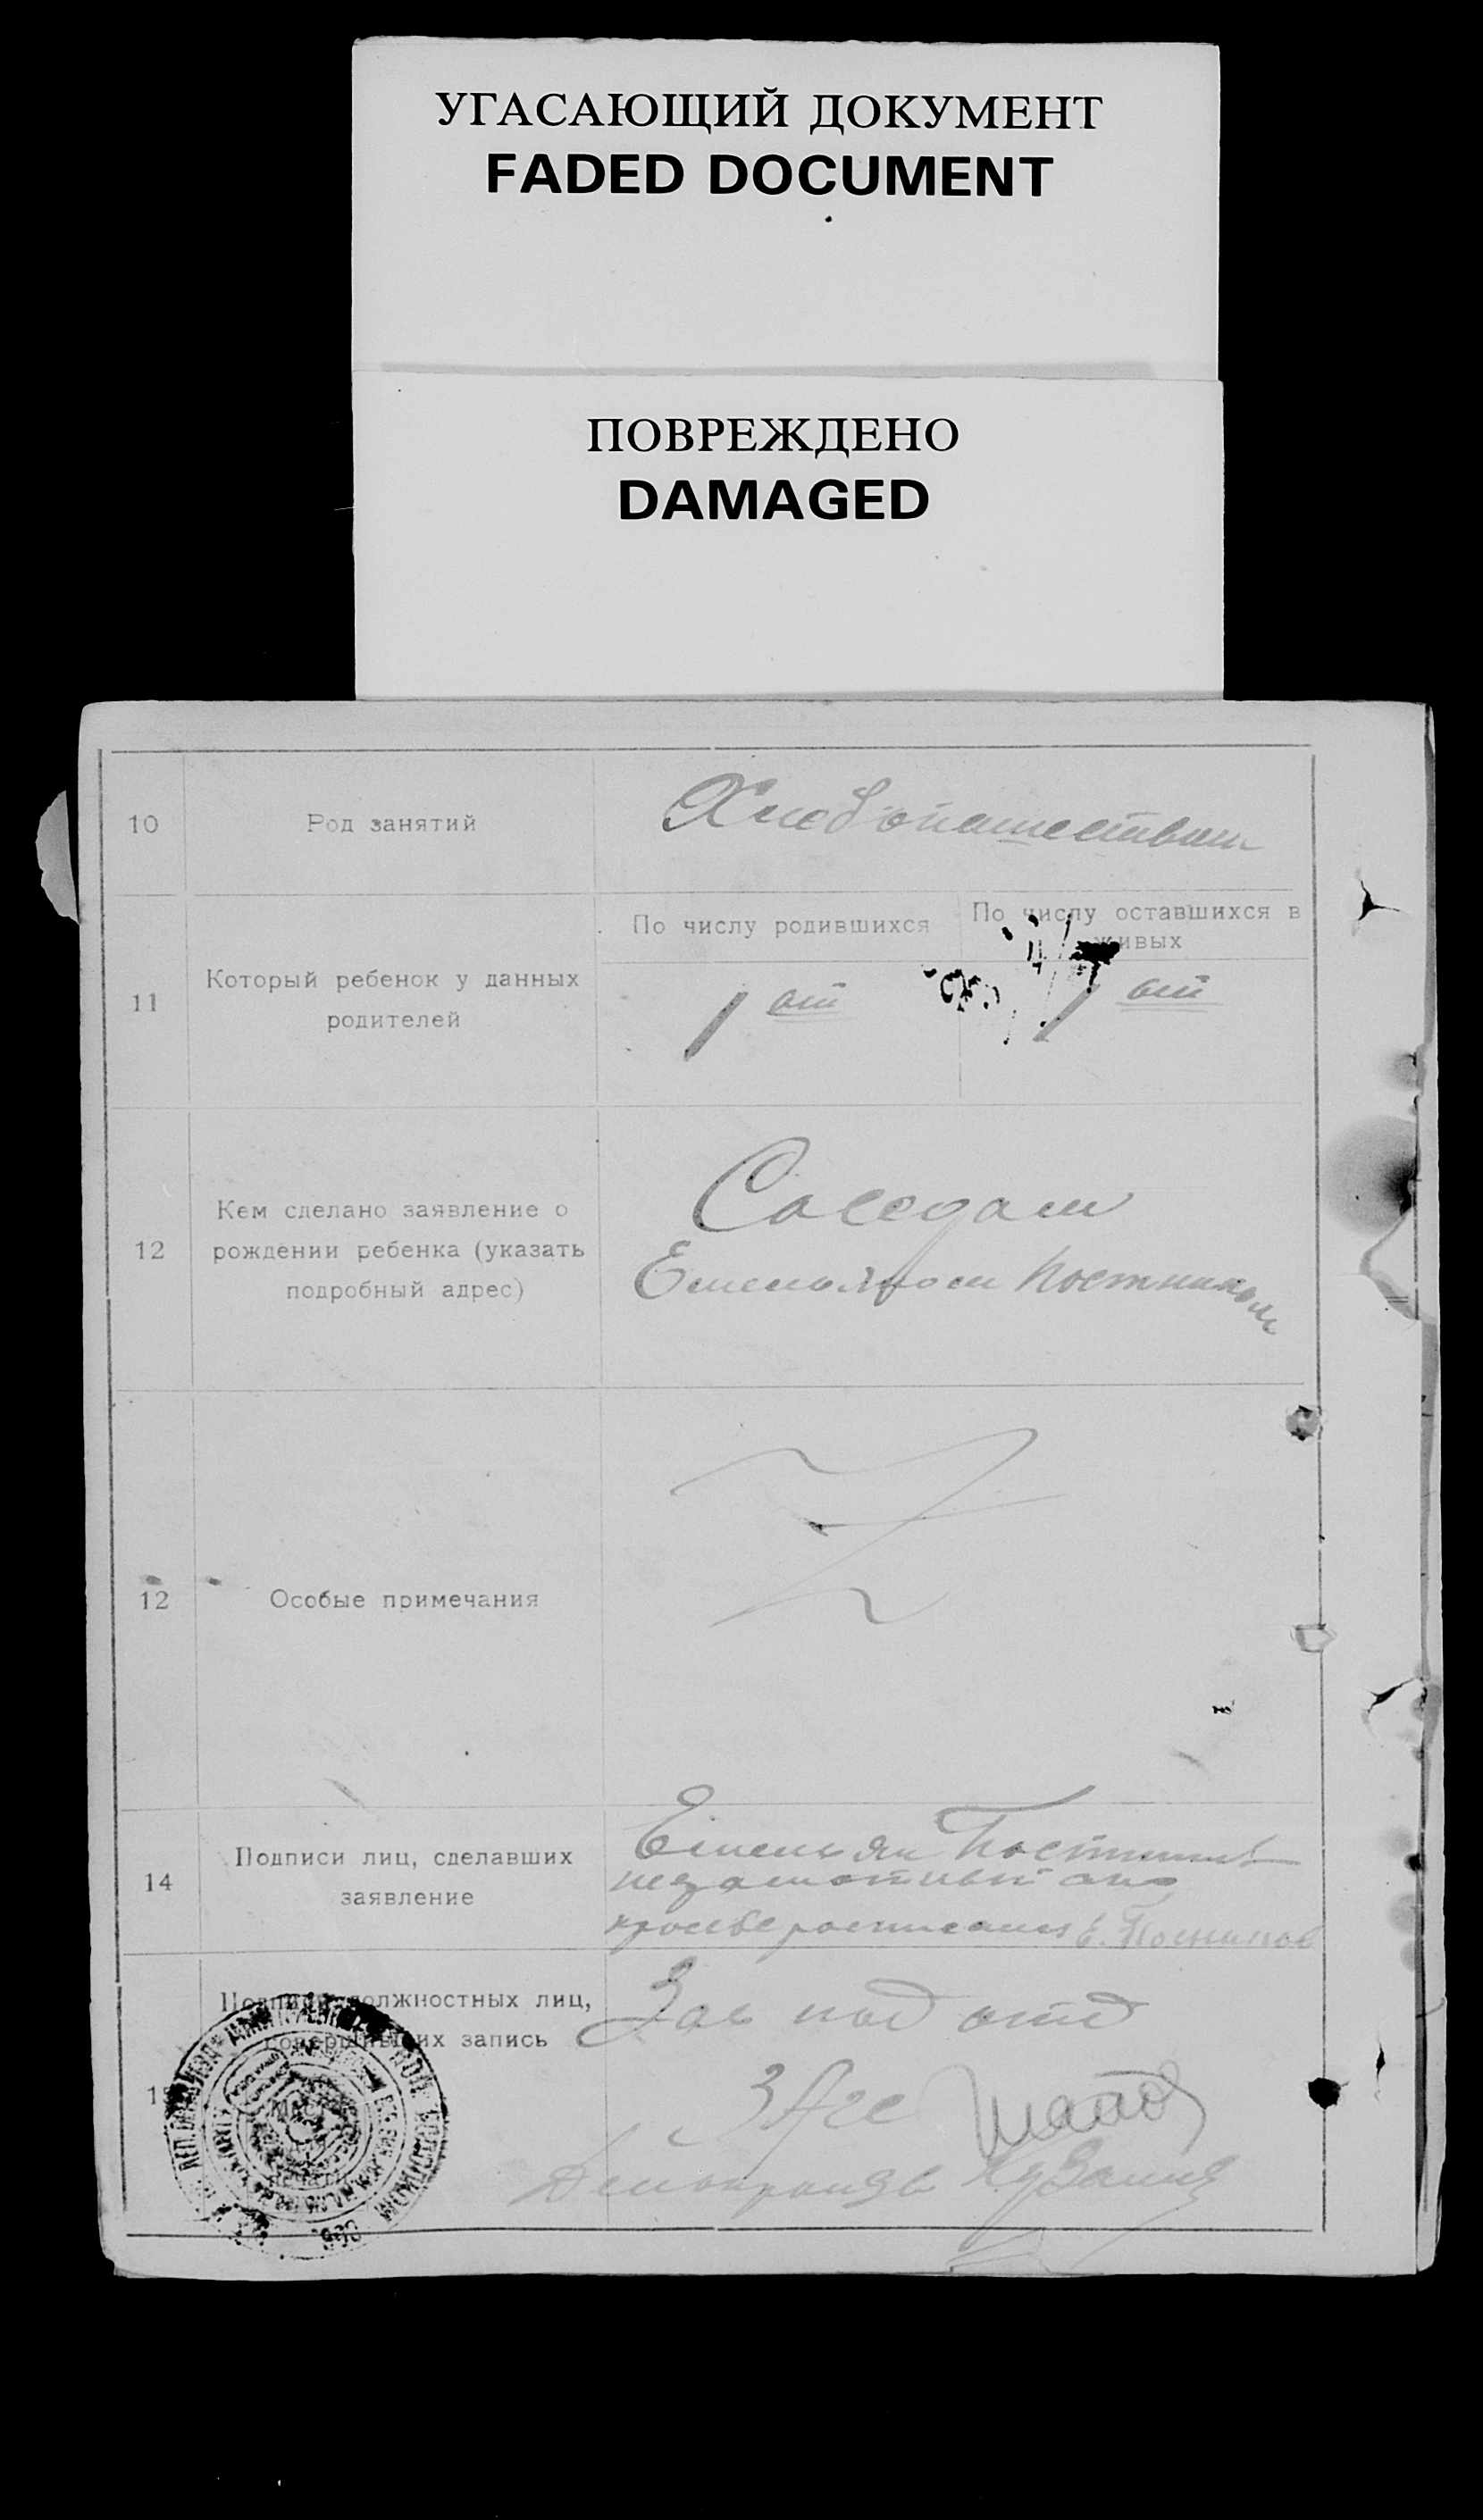 УГАСАЮЩИЙ ДОКУМЕНТ
FADED DOCUMENT
ПОВРЕЖДЕНО
DAMAGED
10
Род занятий
Хлебопашеством
11
Который ребенок у данных
родителей
По числу родившихся
По числу оставшихся в
живых
1 ый
1 ый
12
Кем сделано заявление о
рождении ребенка (указать
подробный адрес)
Соседом
Емельяном Постником
12
Особые примечания
14
Подписи лиц, сделавших
заявление
Емельян
просьбе Е.
15
Подписи должностных лиц,
совершивших запись
Зав под отд
Загс